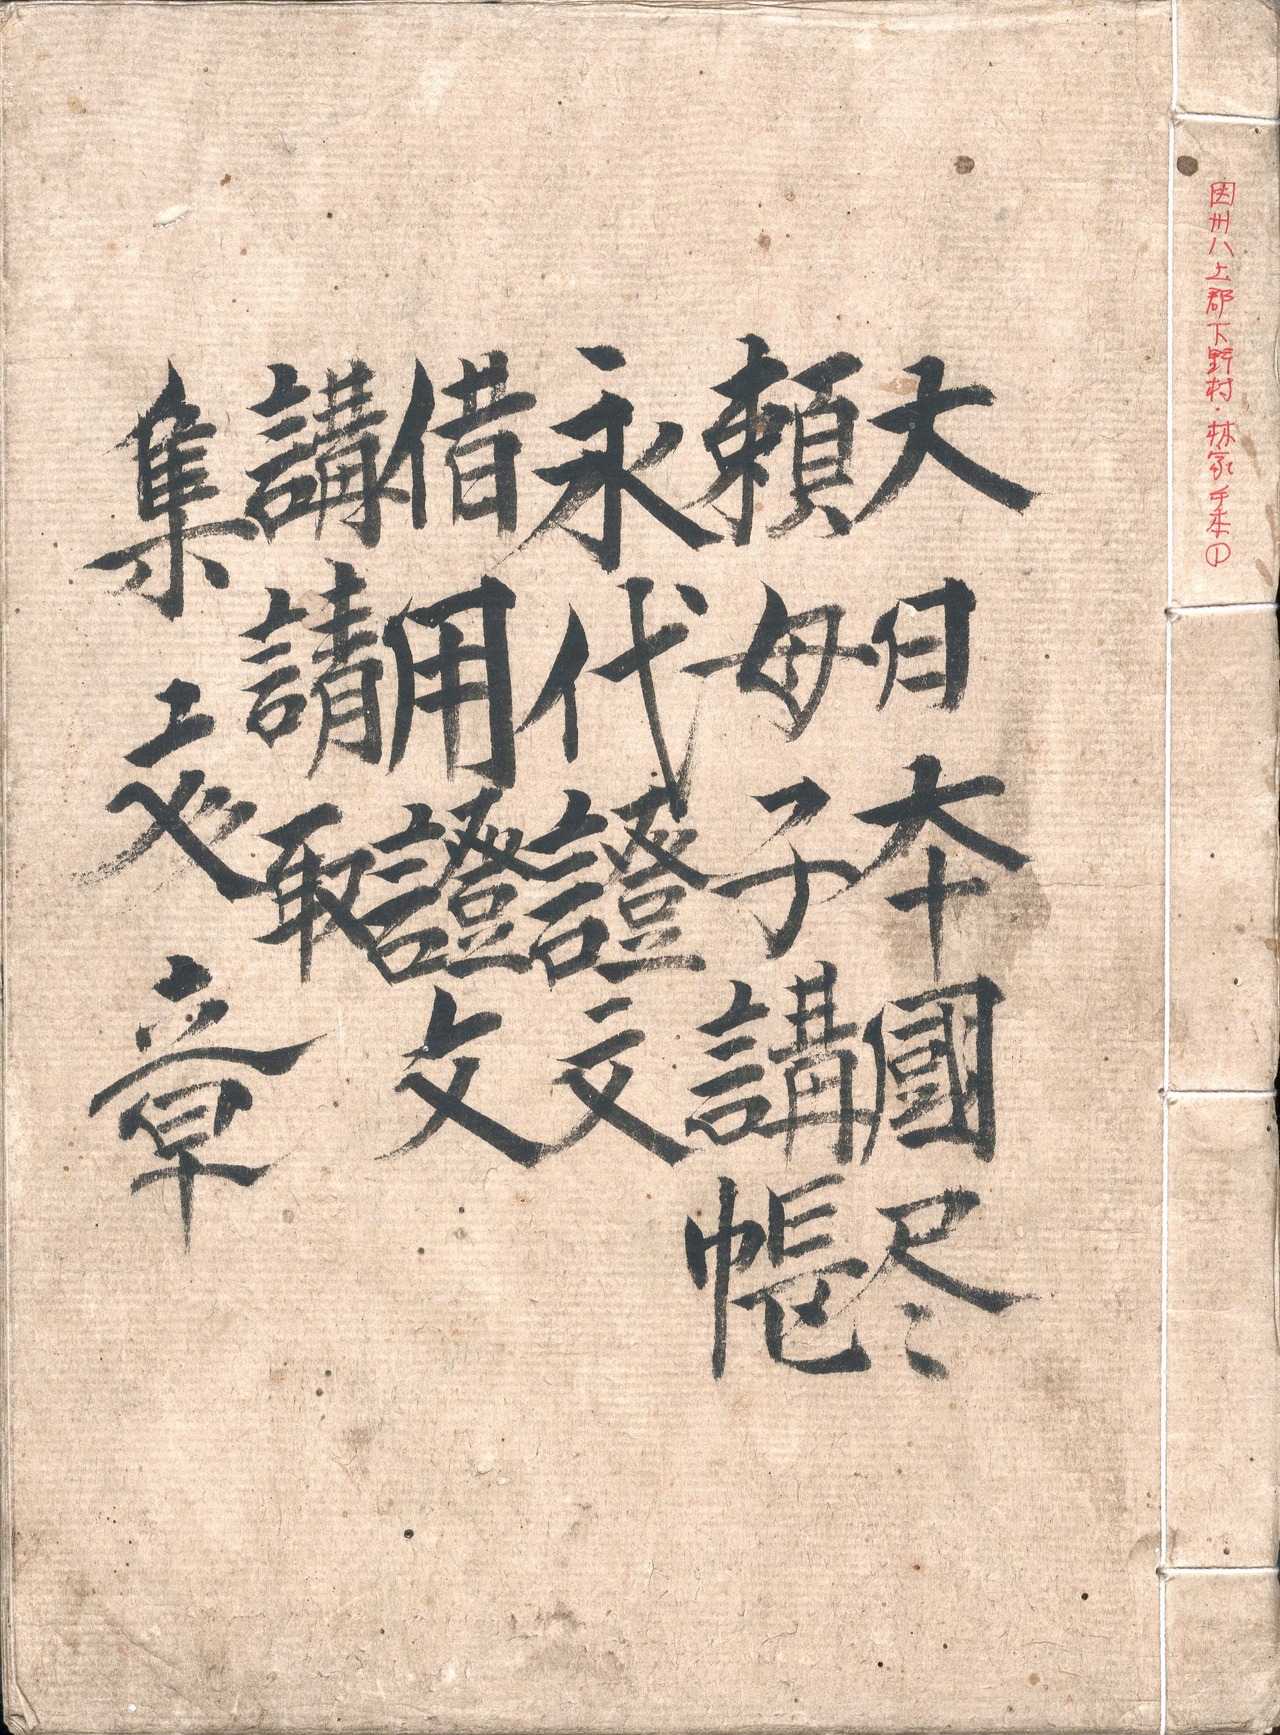 因州八上郡下野村・林家手本①
大日本國尽
頼母子講帳
永代證文
借用證文
講請取
集章